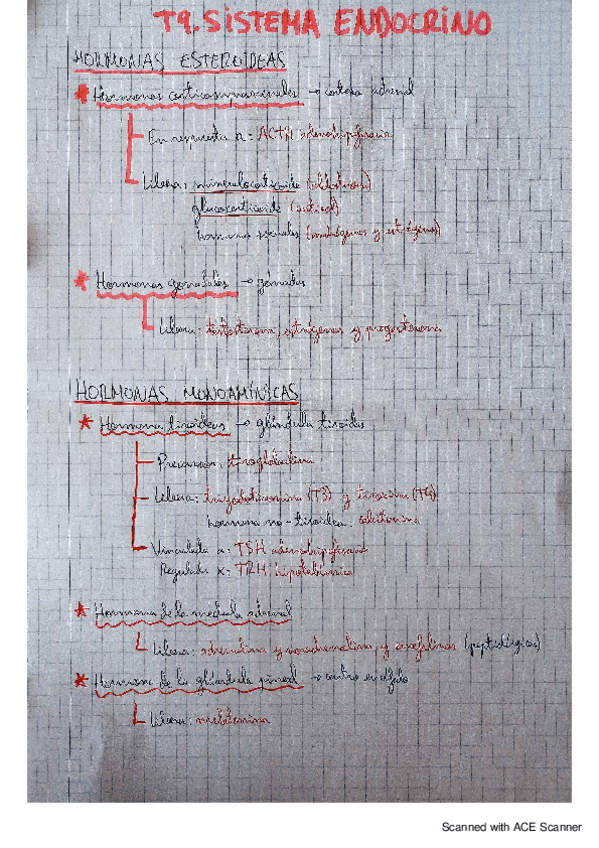 T9. SISTEMA ENDOCRINO
HORMONAS ESTEROIDEAS
* Hormonas corticosuprarrenales → corteza adrenal
En respuesta a: ACTH adenohipofisaria
Libera: mineralocorticoide (aldosterona)
glucocorticoide (cortisol)
hormonas sexuales (andrógenos y estrógenos)
* Hormonas gonadales → gónadas
Libera: testosterona, estrógenos y progesterona
HORMONAS MONOAMÍNICAS
* Hormonas tiroideas → glándula tiroides
Precursor: tiroglobulina
Libera: triyodotironina (T3) y tiroxina (T4)
hormona no-tiroidea: calcitonina
Vinculada a: TSH adenohipofisaria
Regulada x: TRH hipotalámica
* Hormona de la médula adrenal
Libera: adrenalina y noradrenalina y encefalinas (peptidérgicas)
* Hormona de la glándula pineal → centro encéfalo
Libera: melatonina
Scanned with ACE Scanner